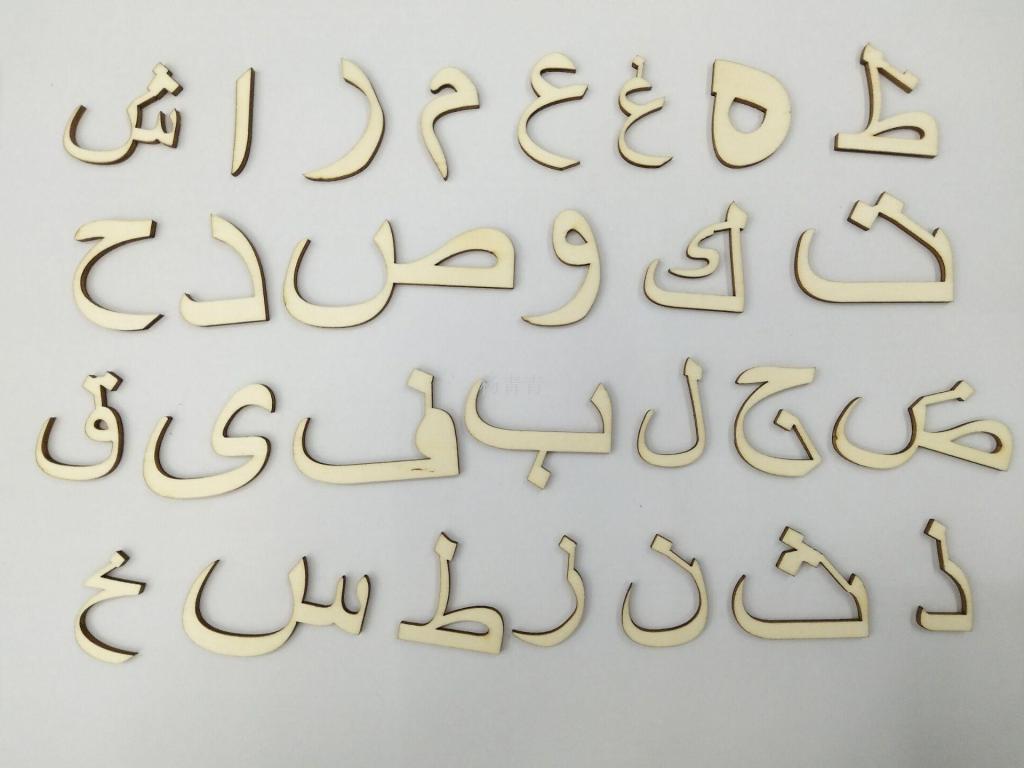 ظ ه غ ع م ر ا ش
ت ك و ص د ح
ض ج ل ب ف ى ق
ذ ث ن ز ط س خ